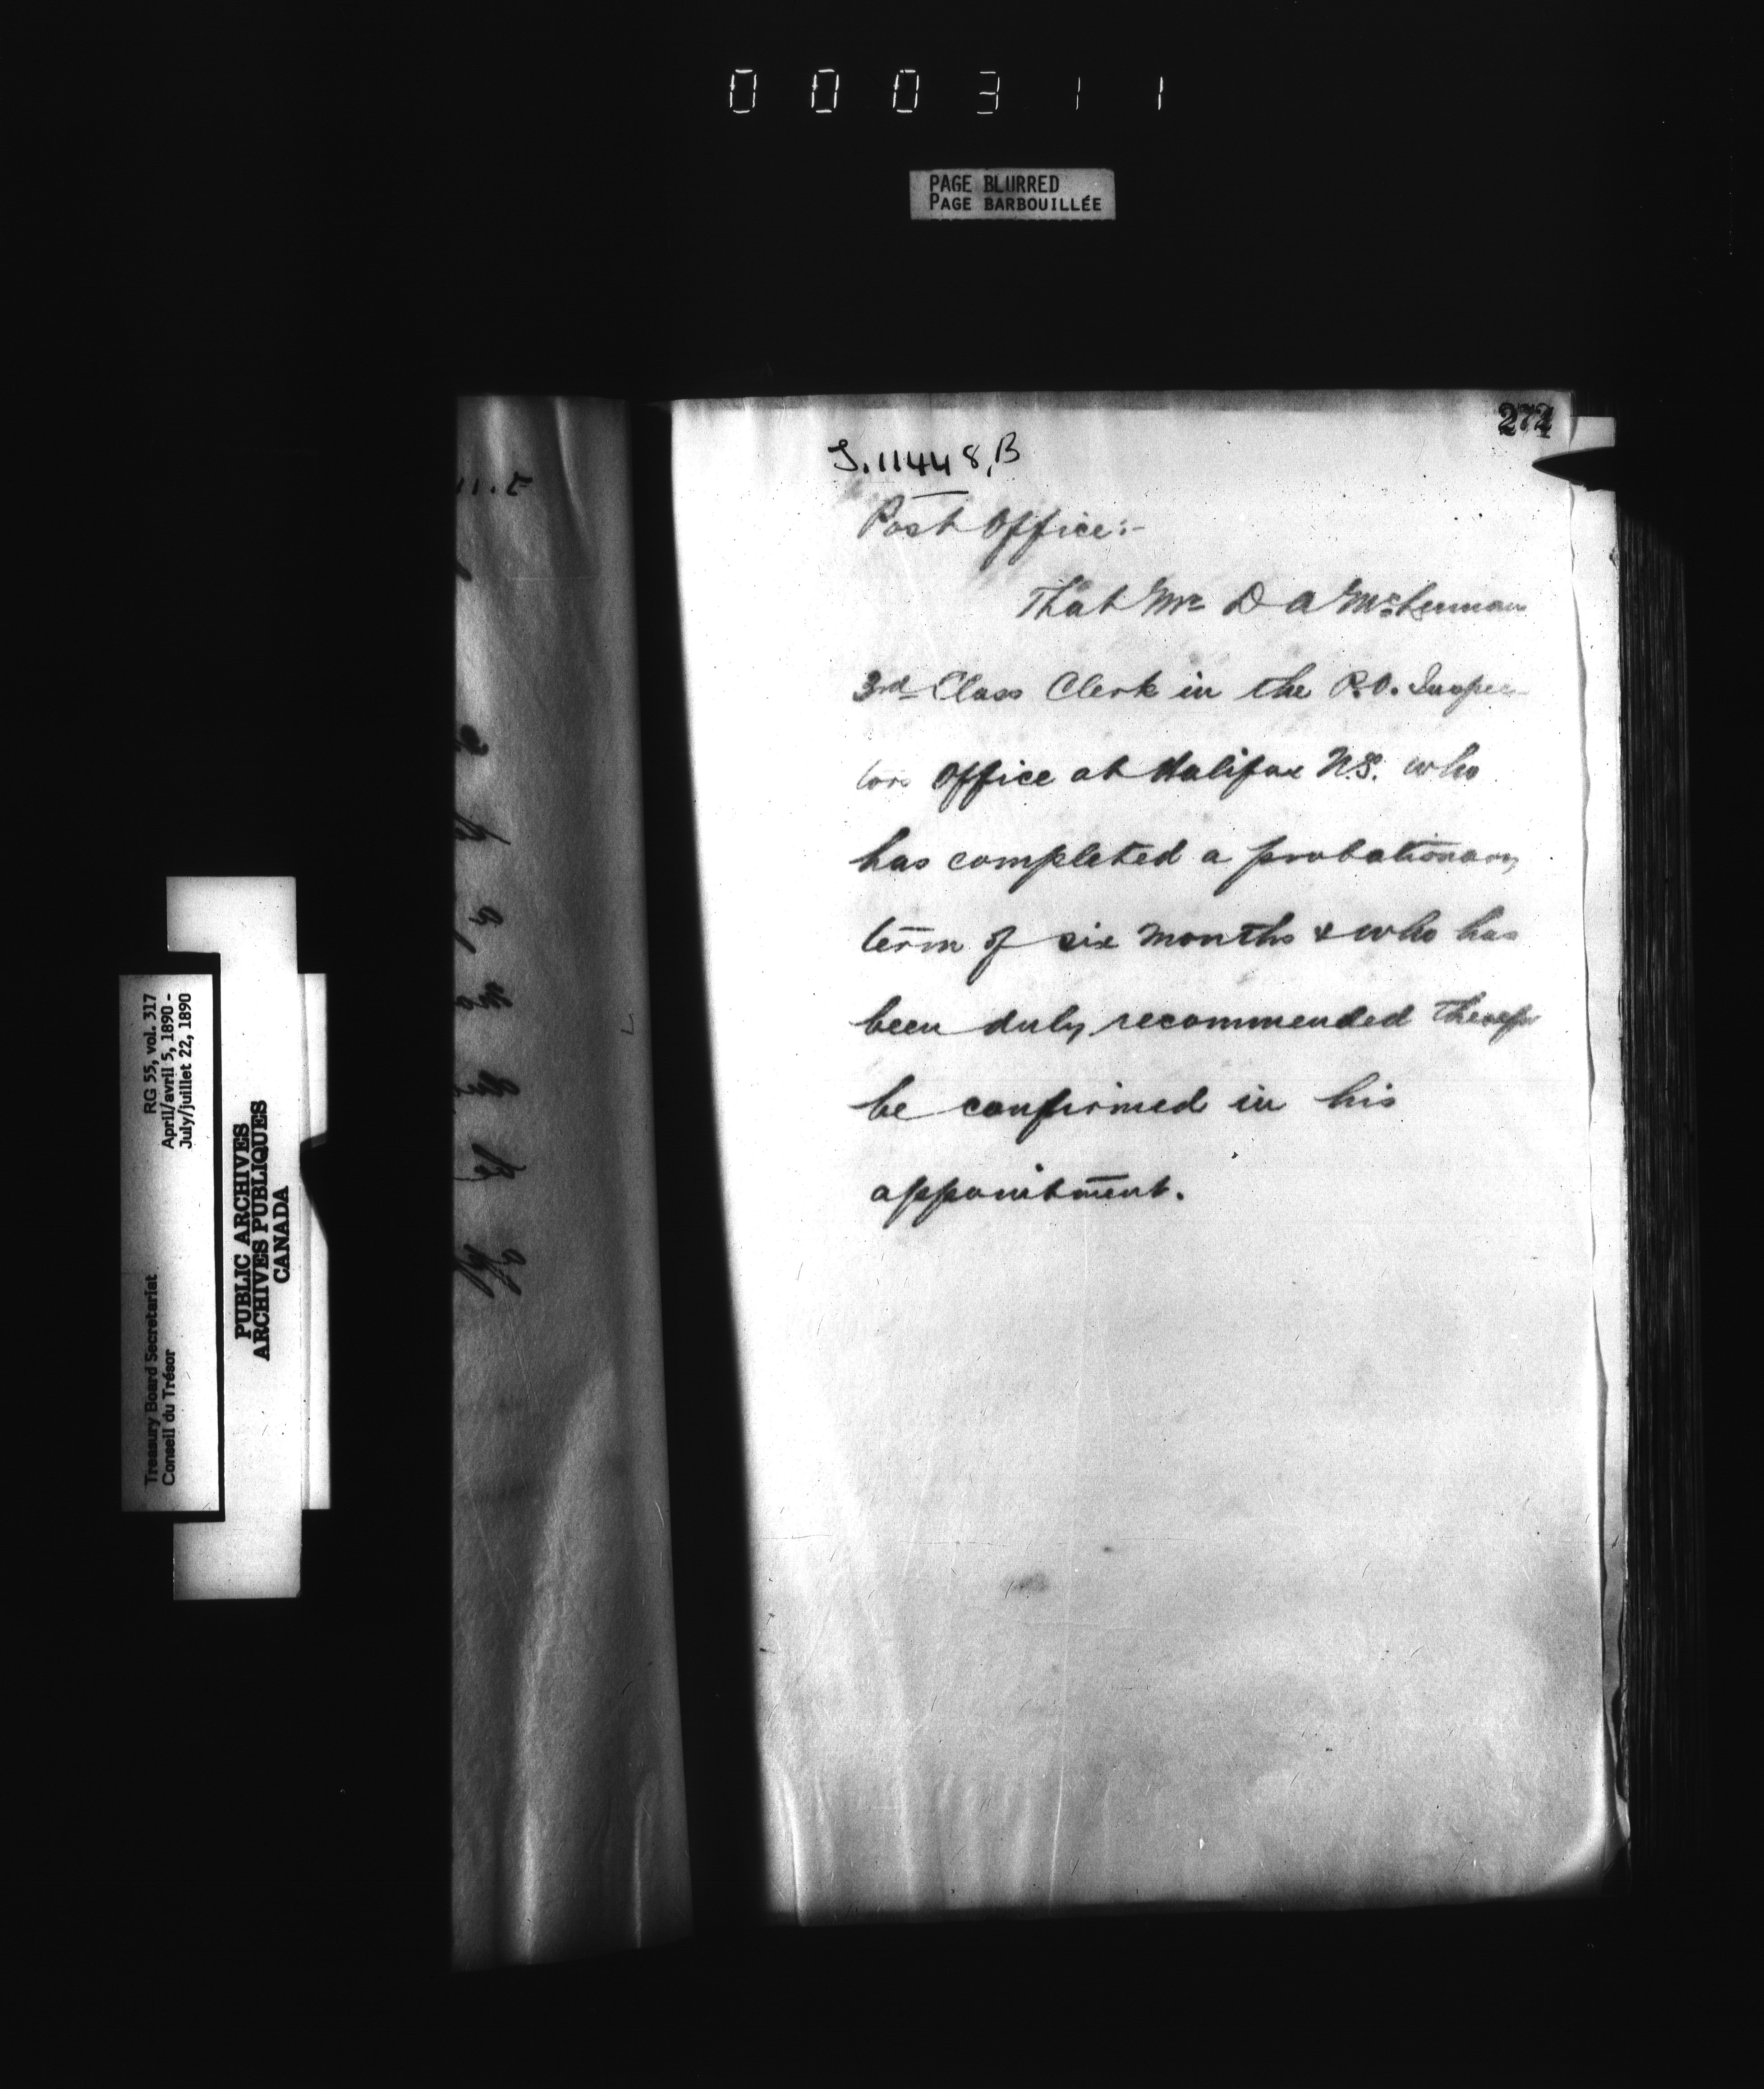 000311
PAGE BLURRED
PAGE BARBOUILLÉE
J.11448,B
Post Office:-
That Mr D A
3rd Class Clerk in the P.O. Inspec-
tors Office at Halifax N.S. who
has completed a probationary
term of six months & who has
been duly recommended therefor
be confirmed in his
appointment.
RG 55, vol. 317
April/avril 5, 1890 -
July/juillet 22, 1890
Treasury Board Secretariat
Conseil du Trésor
PUBLIC ARCHIVES
ARCHIVES PUBLIQUES
CANADA